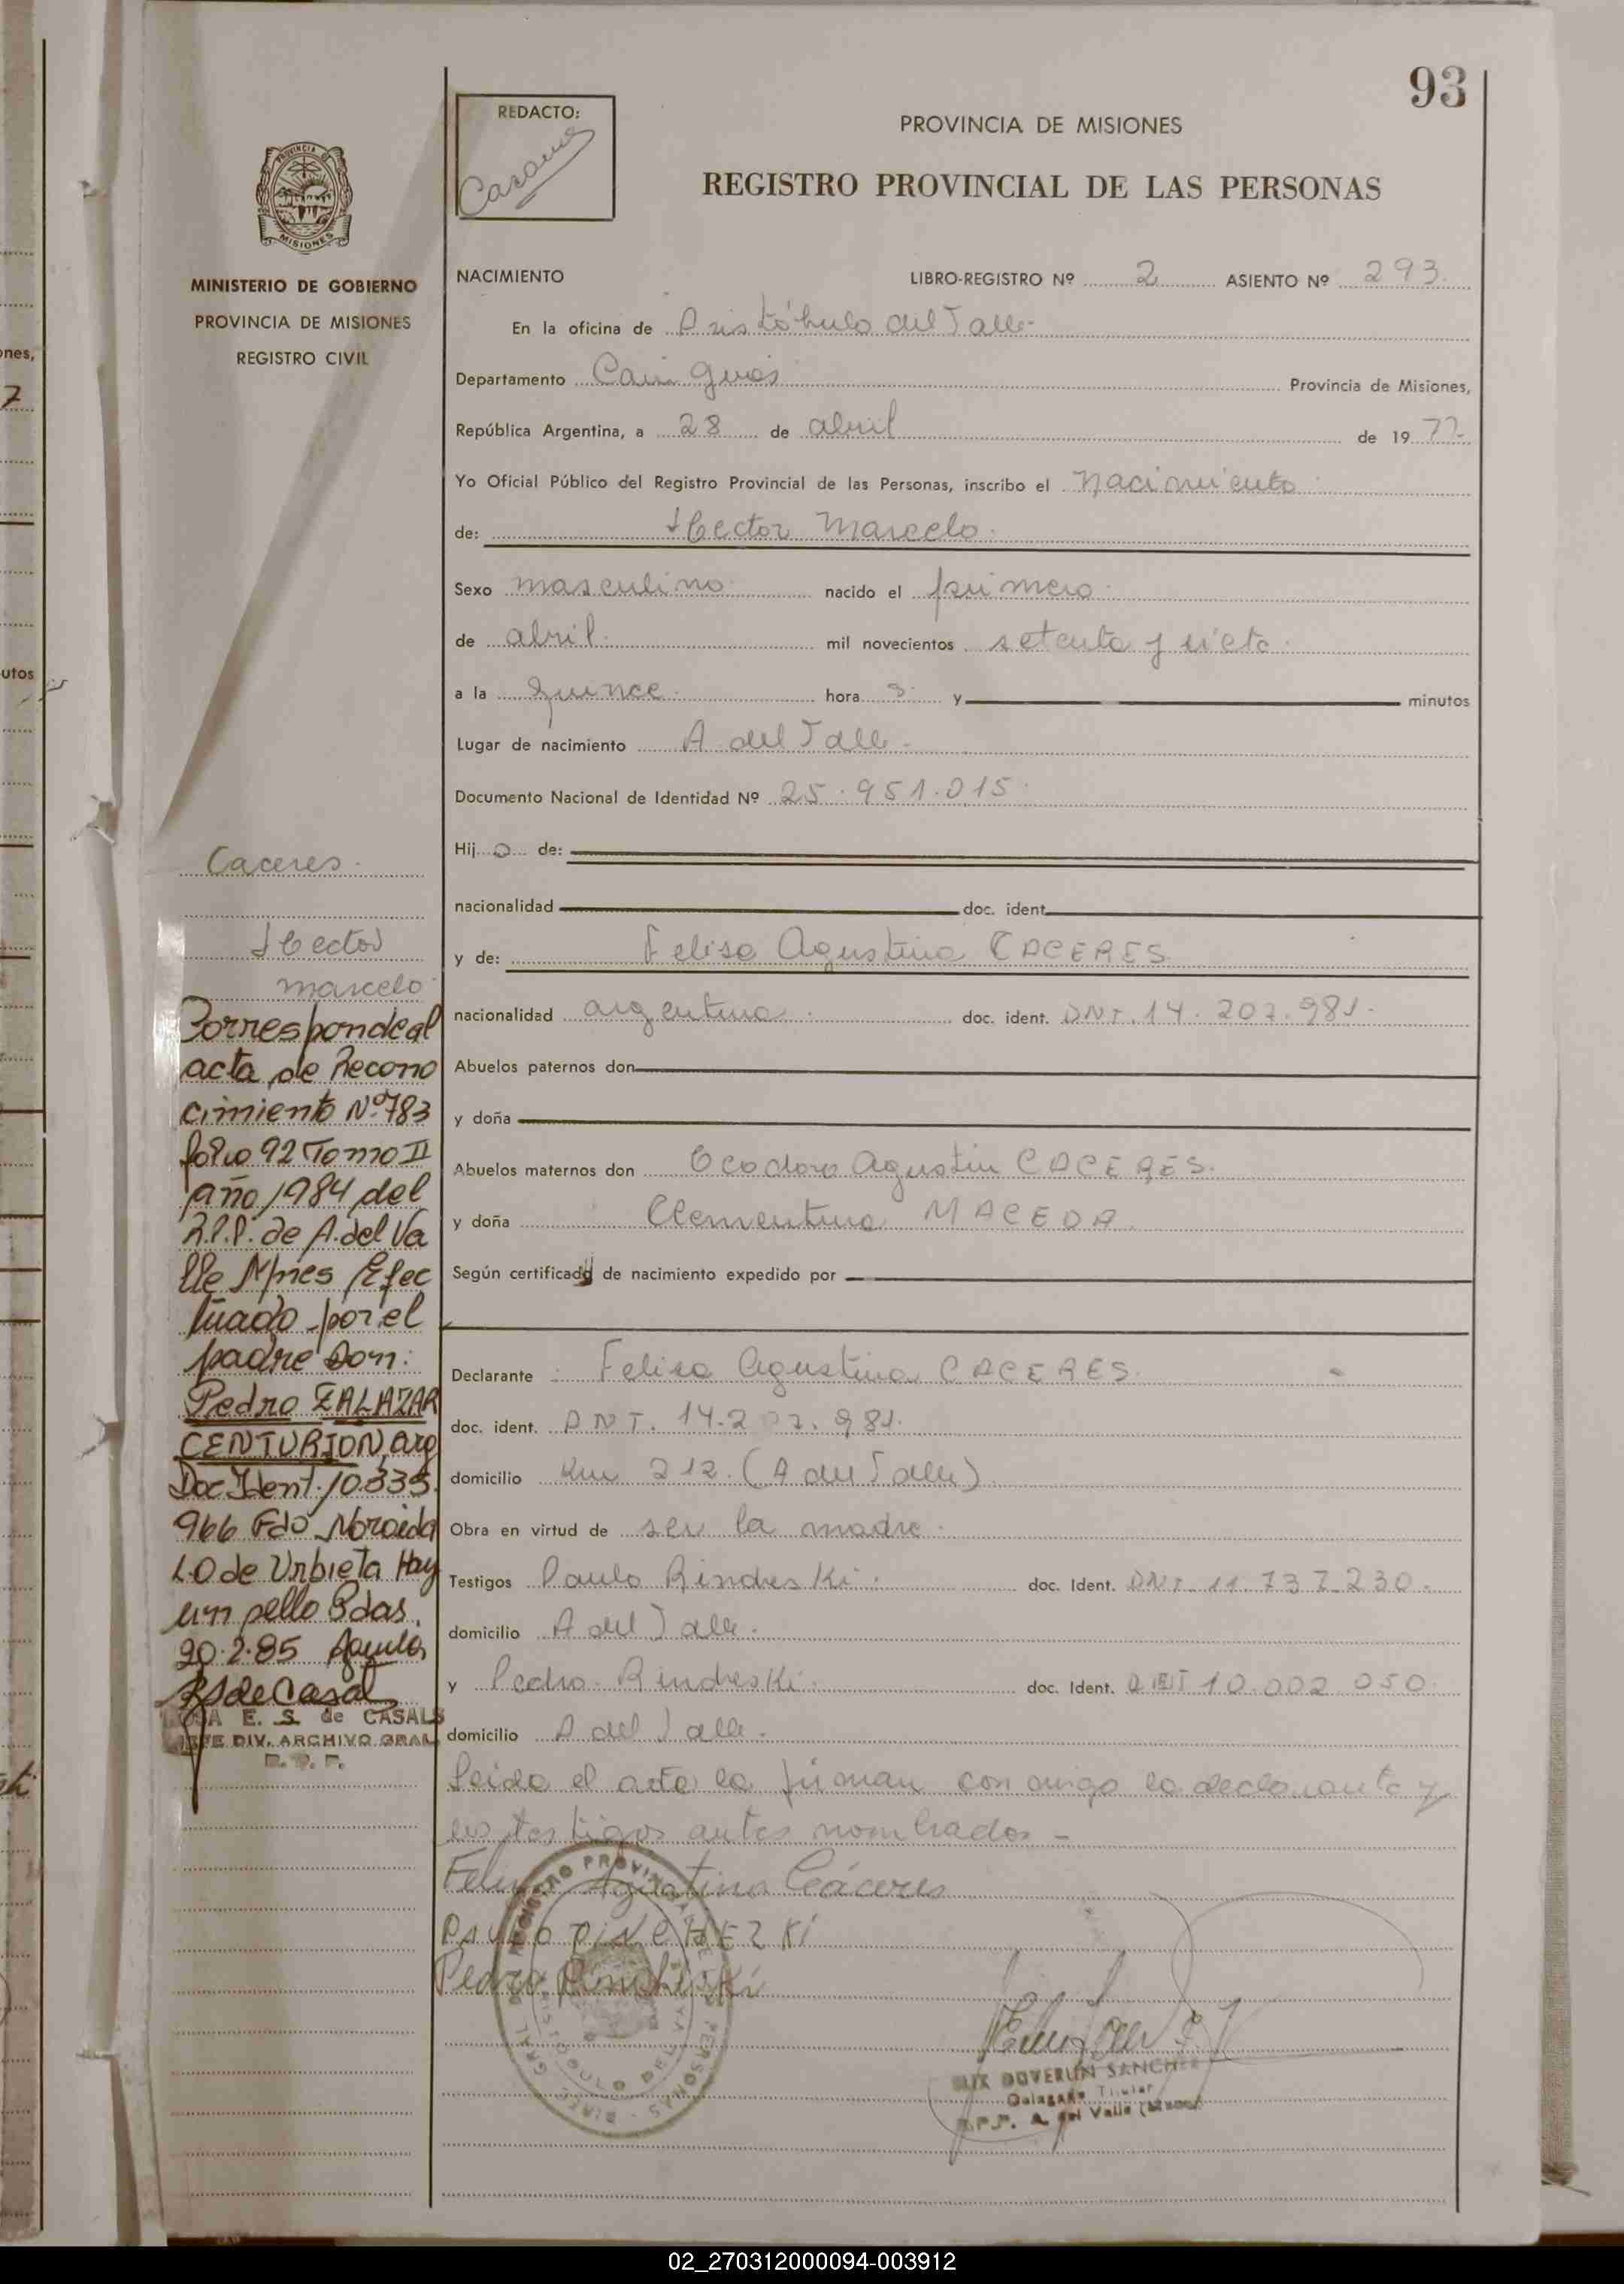 93
REDACTO:
PROVINCIA DE MISIONES
REGISTRO PROVINCIAL DE LAS PERSONAS
PROVINCIA DE
MISIONES
MINISTERIO DE GOBIERNO
PROVINCIA DE MISIONES
REGISTRO CIVIL
NACIMIENTO LIBRO-REGISTRO Nº 2 ASIENTO Nº 293.
En la oficina de Aristóbulo del Valle
Departamento Cainguás Provincia de Misiones,
República Argentina, a 28 de abril de 19 77
Yo Oficial Público del Registro Provincial de las Personas, inscribo el Nacimiento
de: Hector Marcelo.
Sexo masculino nacido el primero
de abril. mil novecientos setenta y siete.
a la quince hora s. y minutos
Lugar de nacimiento A del Valle
Documento Nacional de Identidad Nº 25.951.015
Hij o de:
nacionalidad doc. ident.
y de: Felisa Agustina CACERES
nacionalidad argentina. doc. ident. DNI. 14.207.981.
Abuelos paternos don
y doña
Abuelos maternos don Teodoro Agustin CACERES.
y doña Clementina MACEDA
Según certificado de nacimiento expedido por
Declarante : Felisa Agustina CACERES.
doc. ident. DNI. 14.207.981.
domicilio Km 212. (A del Valle)
Obra en virtud de ser la madre.
Testigos Paulo Rindreski. doc. Ident. DNI. 11.737.230.
domicilio A del Valle.
y Pedro Rindreski. doc. Ident. 10.002.050.
domicilio A del Valle.
Leida el acta la firman conmigo la declarante y
los testigos antes nombrados -
Felisa Agustina Cáceres
Pedro
Caceres.
Hector
Marcelo
Corresponde al
acta de Recono
cimiento Nº 783
folio 92 Tomo II
año 1984 del
R.P.P. de A. del Va
lle Mnes Efec
tuado por el
padre Don:
Pedro ZALAZAR
CENTURION, arg
Doc Ident. 10.335.
966 Fdo Noroida
L.O de Urbieta Hay
un sello Pdas.
20.2.85
RS de Casal
E. S. de CASALS
JEFE DIV. ARCHIVO GRAL
R. P. P.
REGISTRO PROVINCIAL DE PERSONAS
ARISTOBULO DEL VALLE
DUVERLIN SANCHEZ
Delegado Titular
R.P.P. A. del Valle (Mnes)
nes,
7
utos
02_270312000094-003912